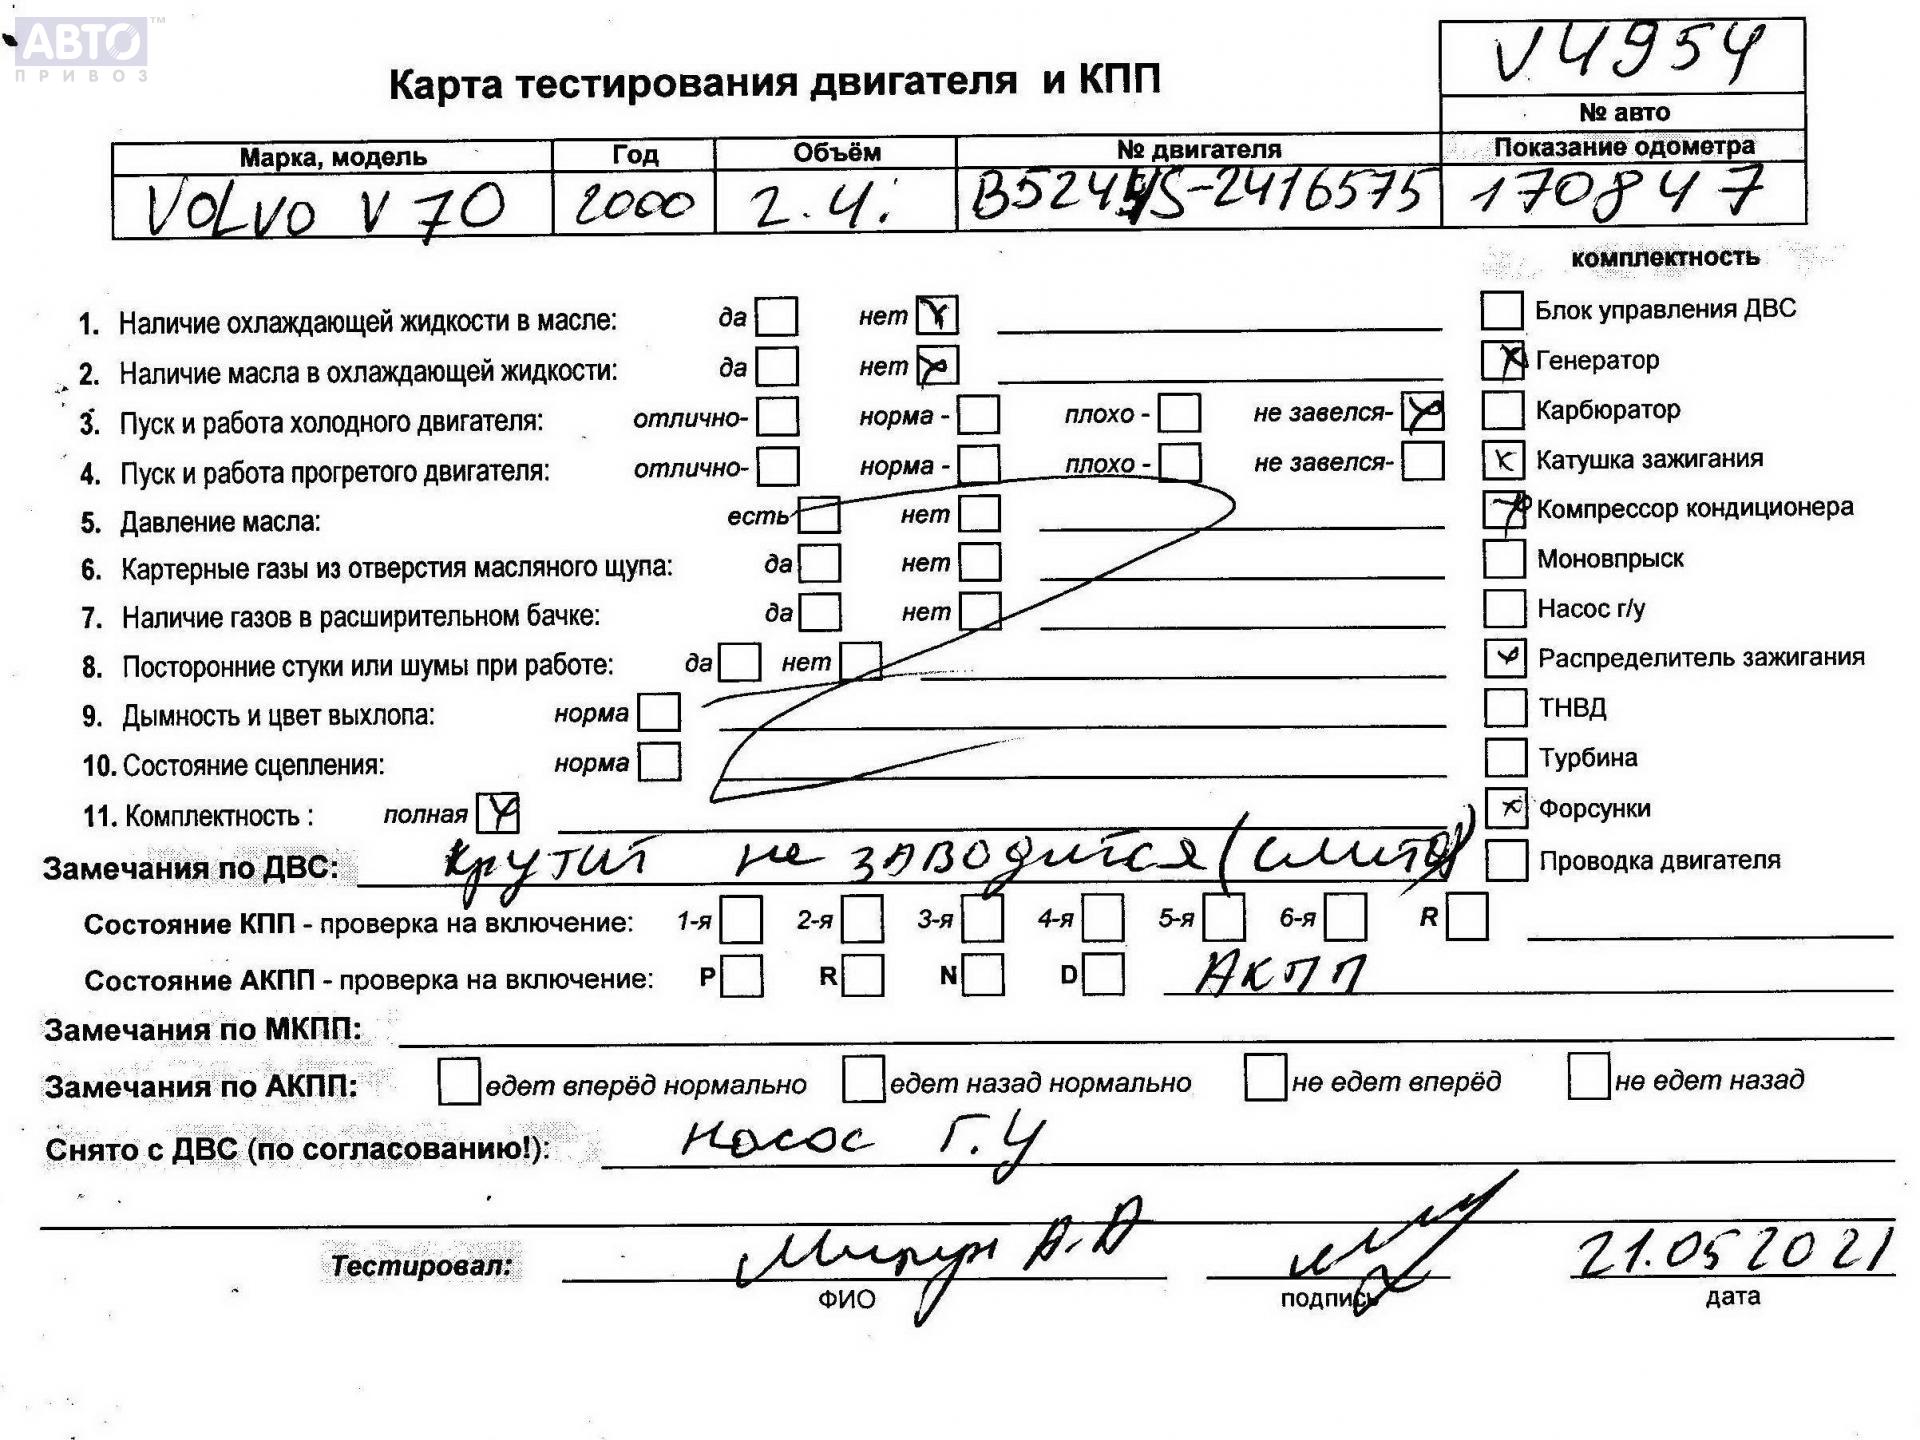 АВТО™
ПРИВОЗ
V4954
Карта тестирования двигателя и КПП
№ авто
Марка, модель Год Объём № двигателя Показание одометра
VOLVO V70 2000 2.4i -2416575 170847
комплектность
1. Наличие охлаждающей жидкости в масле: да нет
Блок управления ДВС
2. Наличие масла в охлаждающей жидкости: да нет
Генератор
3. Пуск и работа холодного двигателя: отлично- норма - плохо - не завелся-
Карбюратор
4. Пуск и работа прогретого двигателя: отлично- норма - плохо - не завелся-
Катушка зажигания
5. Давление масла: есть нет
Компрессор кондиционера
6. Картерные газы из отверстия масляного щупа: да нет
Моновпрыск
7. Наличие газов в расширительном бачке: да нет
Насос г/у
8. Посторонние стуки или шумы при работе: да нет
Распределитель зажигания
9. Дымность и цвет выхлопа: норма
ТНВД
10. Состояние сцепления: норма
Турбина
11. Комплектность : полная
Форсунки
Замечания по ДВС: крутит не заводится
Проводка двигателя
Состояние КПП - проверка на включение: 1-я 2-я 3-я 4-я 5-я 6-я R
Состояние АКПП - проверка на включение: P R N D АКПП
Замечания по МКПП:
Замечания по АКПП: едет вперёд нормально едет назад нормально не едет вперёд не едет назад
Снято с ДВС (по согласованию!): насос Г.У
Тестировал: А.А 21.05 2021
ФИО подпись дата